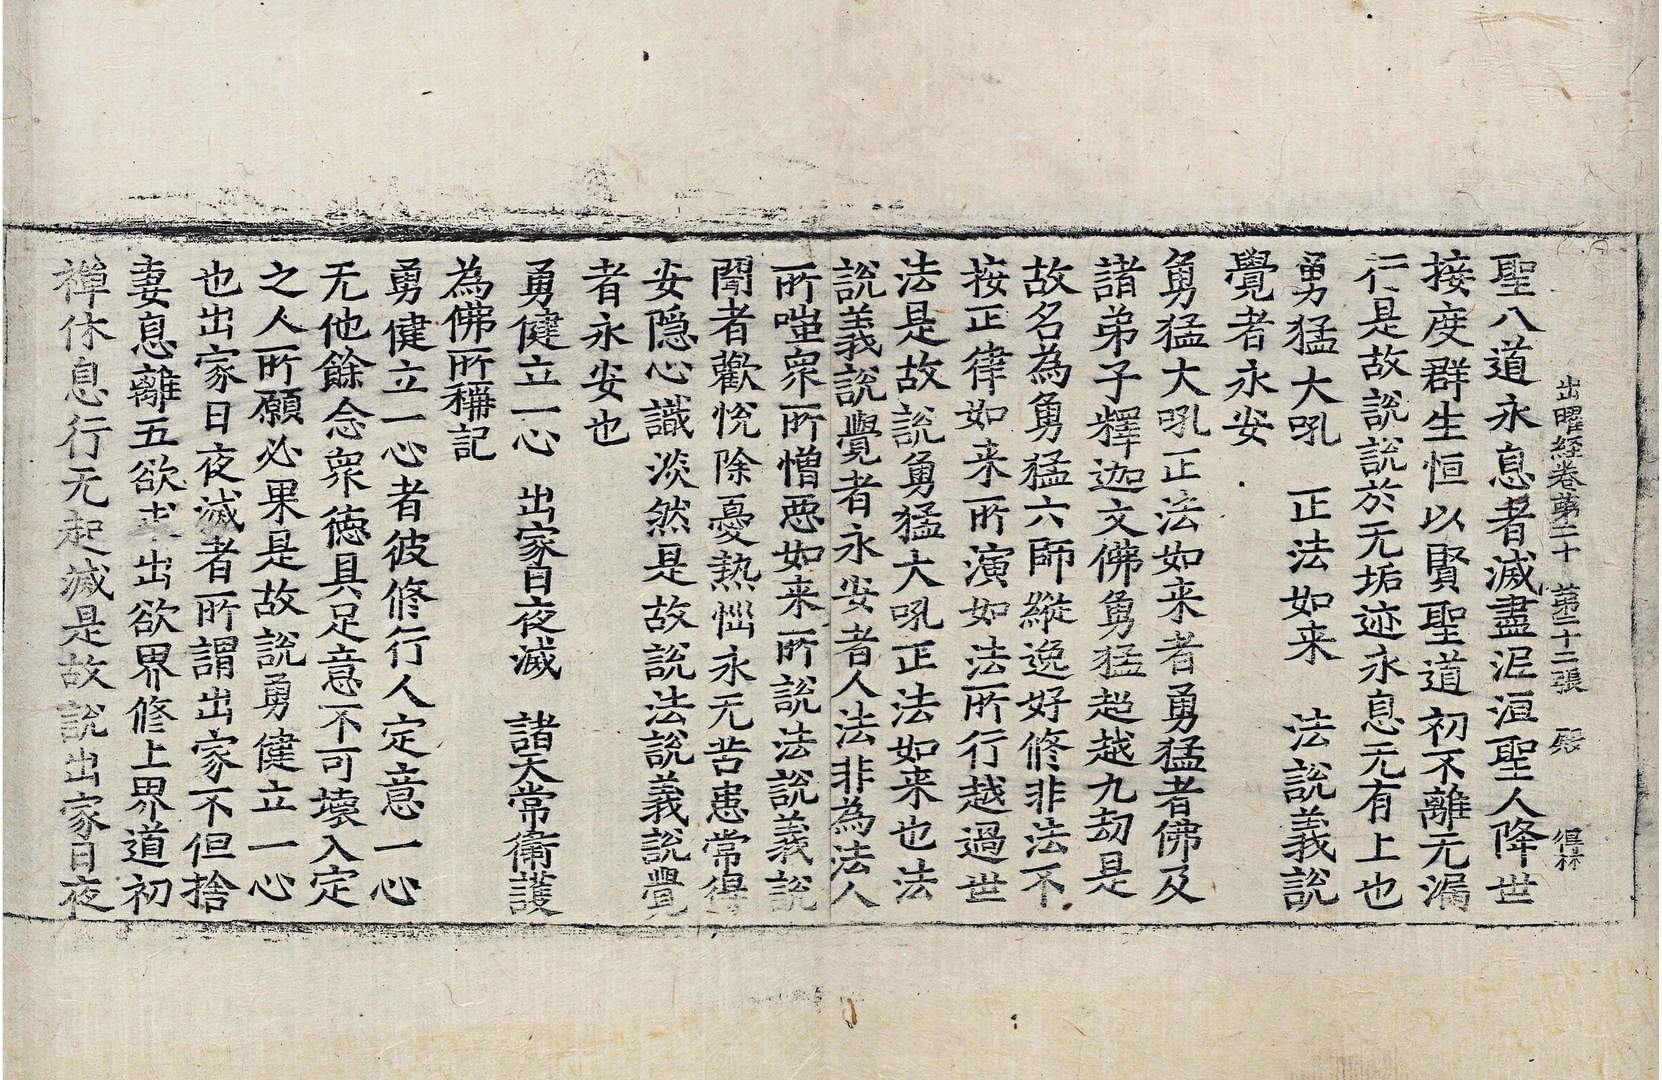 出曜経卷第二十 第二十二張 殷 得林
聖八道永息者滅盡泥洹聖人降世
接度群生恒以賢聖道初不離无漏
行是故說說於无垢迹永息无有上也
勇猛大吼 正法如来 法說義說
覺者永安
勇猛大吼正法如来者勇猛者佛及
諸弟子釋迦文佛勇猛超越九劫是
故名為勇猛六師縱逸好修非法不
按正律如来所演如法所行越過世
法是故說勇猛大吼正法如来也法
說義說覺者永安者人法非為法人
所嗤衆所憎惡如来所說法說義說
聞者歡悅除憂熱惱永无苦患常得
安隱心識淡然是故說法說義說覺
者永安也
勇健立一心 出家日夜滅 諸天常衛護
為佛所稱記
勇健立一心者彼修行人定意一心
无他餘念衆德具足意不可壞入定
之人所願必果是故說勇健立一心
也出家日夜滅者所謂出家不但捨
妻息離五欲求出欲界修上界道初
禅休息行无起滅是故說出家日夜